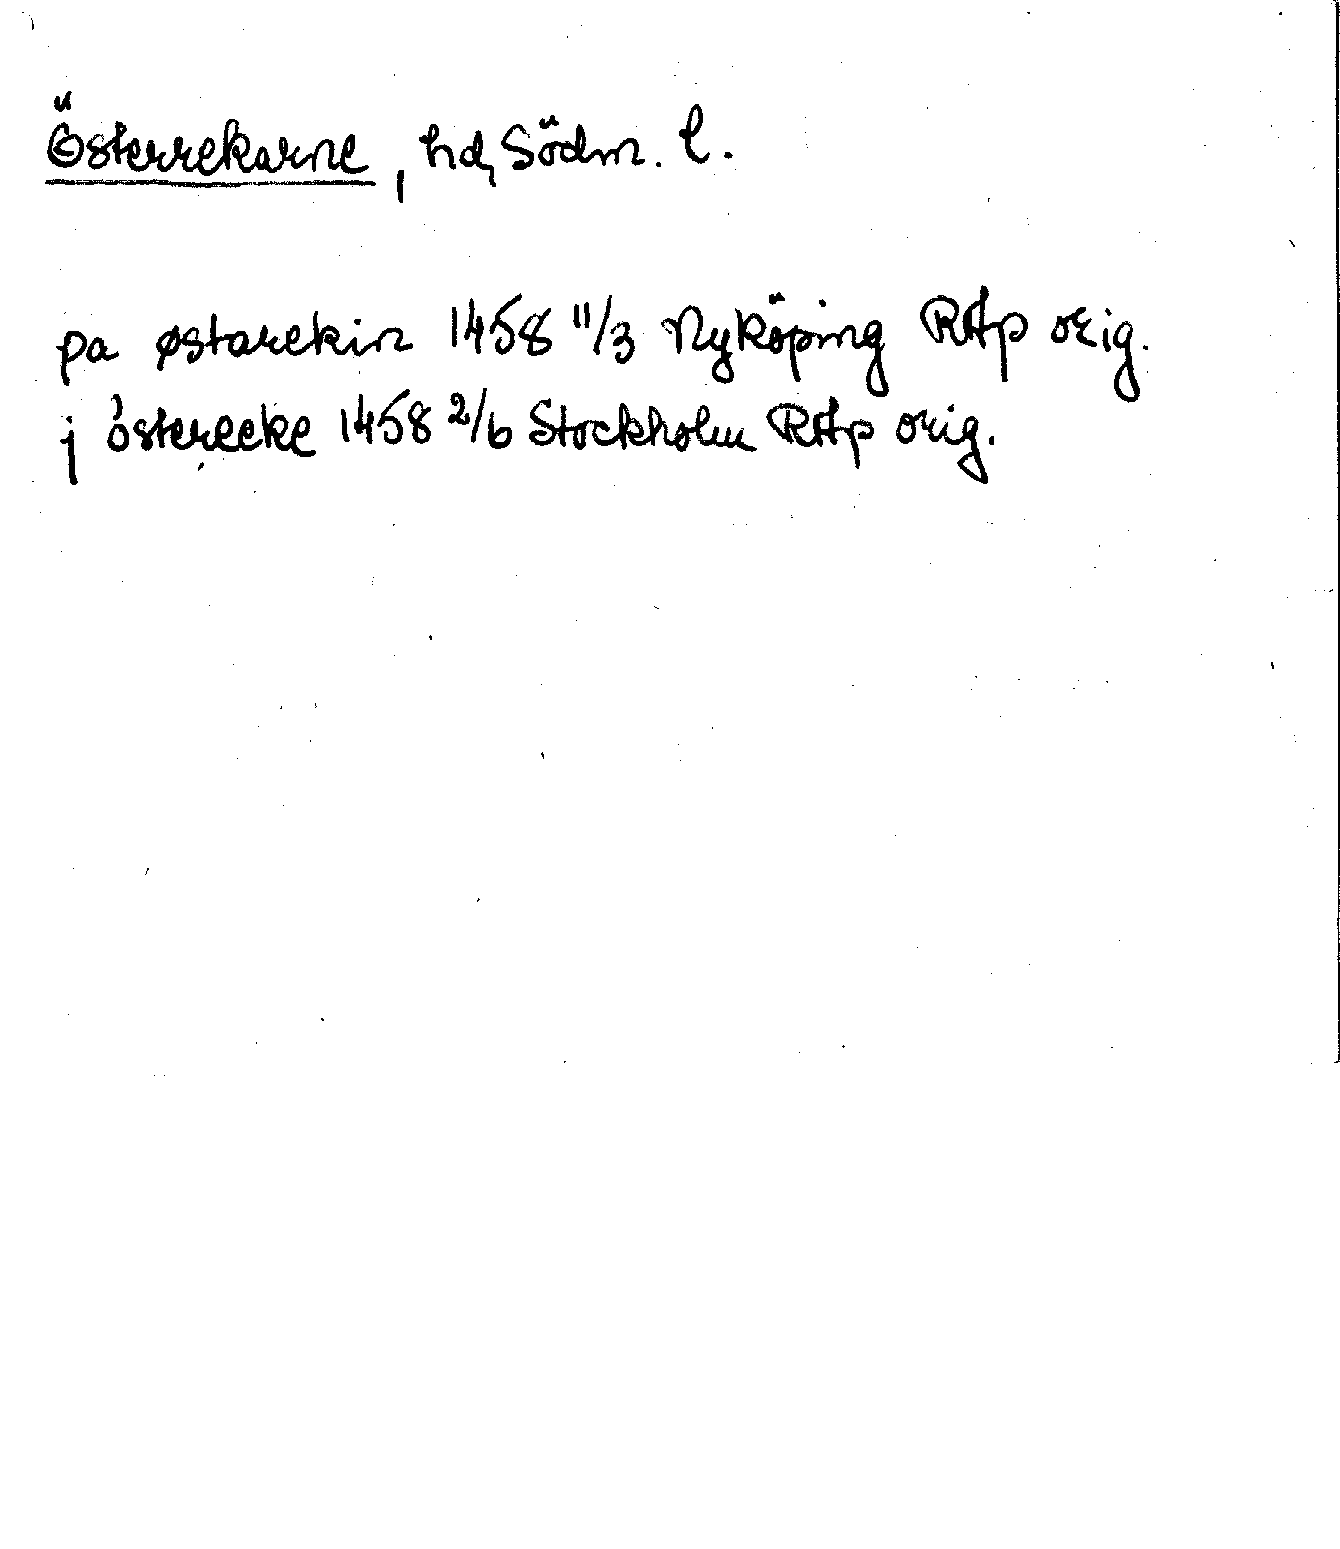 Österrekarne, hd, Södm. l.
pa østarekin 1458 11/3 Nyköping RAp orig.
j österecke 1458 2/6 Stockholm RAp orig.